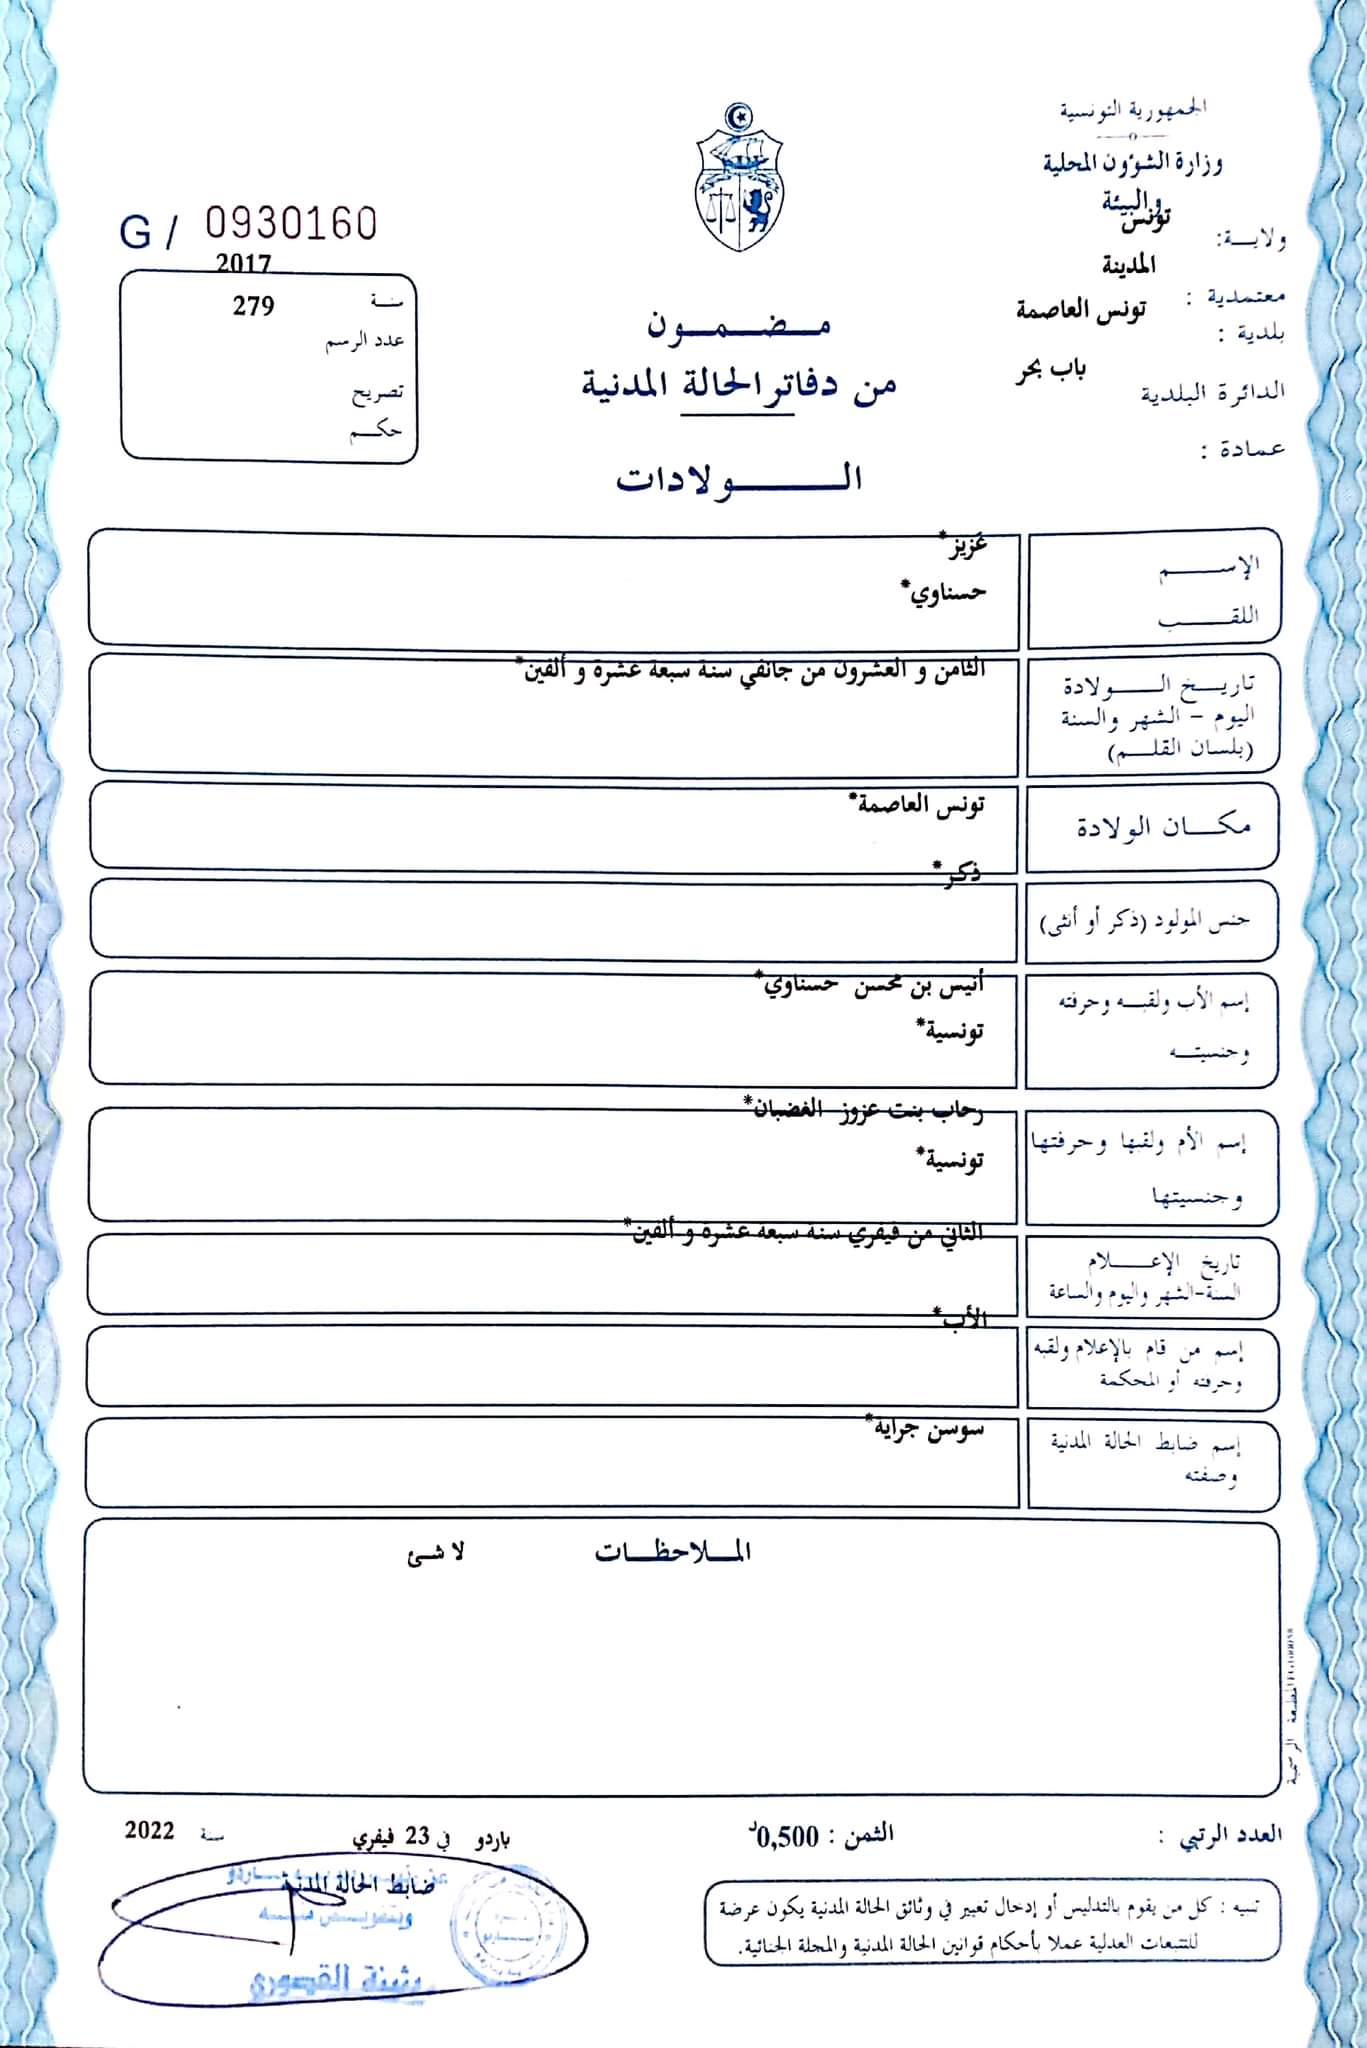 الجمهورية التونسية
وزارة الشؤون المحلية
والبيئة
ولاية: تونس
المدينة
معتمدية :
بلدية : تونس العاصمة
الدائرة البلدية باب بحر
عمادة :
G / 0930160
2017
سنة
279
عدد الرسم
تصريح
حكم
مضمون
من دفاتر الحالة المدنية
الولادات
الإسم عزيز*
اللقب حسناوي*
تاريخ الولادة الثامن و العشرون من جانفي سنة سبعة عشرة و ألفين*
اليوم - الشهر والسنة
(بلسان القلم)
مكان الولادة تونس العاصمة*
ذكر*
جنس المولود (ذكر أو أنثى)
إسم الأب ولقبه وحرفته أنيس بن محسن حسناوي*
وجنسيته تونسية*
رحاب بنت عزوز الغضبان*
إسم الأم ولقبها وحرفتها
وجنسيتها تونسية*
الثاني من فيفري سنة سبعة عشرة و ألفين*
تاريخ الإعلام
السنة-الشهر واليوم والساعة
الأب*
إسم من قام بالإعلام ولقبه
وحرفته أو المحكمة
إسم ضابط الحالة المدنية سوسن جراية*
وصفته
الملاحظات لا شئ
المطبعة الرسمية
العدد الرتبي :
الثمن : 0,500د
باردو في 23 فيفري سنة 2022
ضابط الحالة المدنية
وبتفويض منه
بثينة القصوري
تنبيه : كل من يقوم بالتدليس أو إدخال تغيير في وثائق الحالة المدنية يكون عرضة
للتتبعات العدلية عملا بأحكام قوانين الحالة المدنية والمجلة الجنائية.